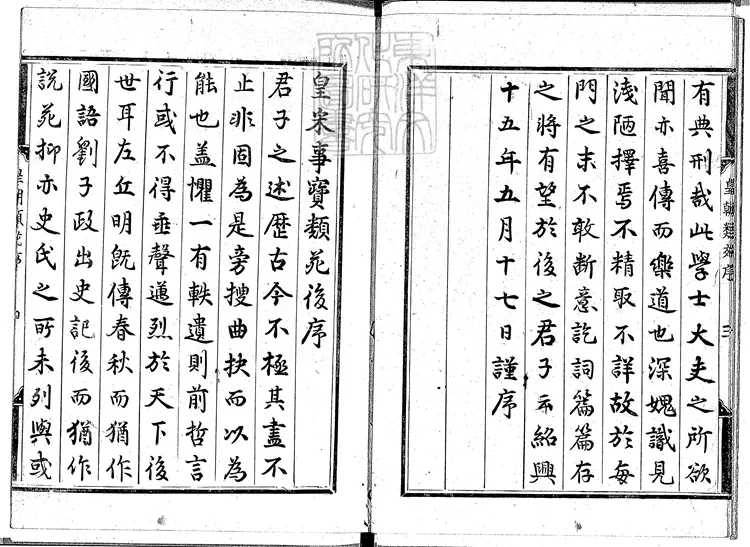 有典刑哉此學士大夫之所欲
聞亦喜傳而樂道也深媿識見
淺陋擇焉不精取不詳故於每
門之末不敢斷意訖詞篇篇存
之將有望於後之君子示紹興
十五年五月十七日謹序
皇宋事寶類苑後序
君子之述歷古今不極其盡不
止非固為是旁搜曲抉而以為
能也蓋懼一有軼遺則前哲言
行或不得垂聲邁烈於天下後
世耳左丘明旣傳春秋而猶作
國語劉子政出史記後而猶作
說苑抑亦史氏之所未列與或